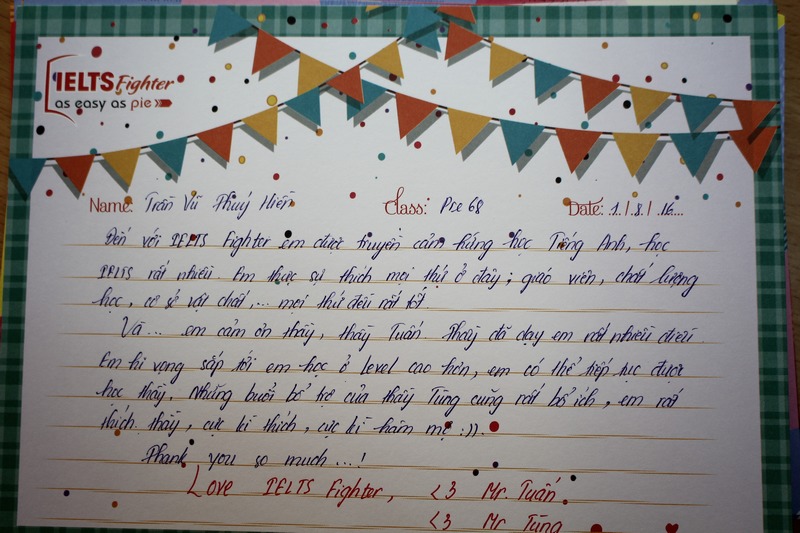 IELTS Fighter
as easy as pie
Name: Trần Vũ Thuý Hiền Class: Pre 68 Date: 1 / 8 / 16...
Đến với IELTS Fighter em được truyền cảm hứng học Tiếng Anh, học
IELTS rất nhiều. Em thực sự thích mọi thứ ở đây; giáo viên, chất lượng
học, cơ sở vật chất,... mọi thứ đều rất tốt.
Và... em cảm ơn thầy, thầy Tuấn. Thầy đã dạy em rất nhiều điều.
Em hi vọng sắp tới em học ở level cao hơn, em có thể tiếp tục được
học thầy. Những buổi bổ trợ của thầy Tùng cũng rất bổ ích, em rất
thích thầy, cực kì thích, cực kì hâm mộ :)).
Thank you so much...!
Love IELTS Fighter, <3 Mr. Tuấn.
<3 Mr Tùng